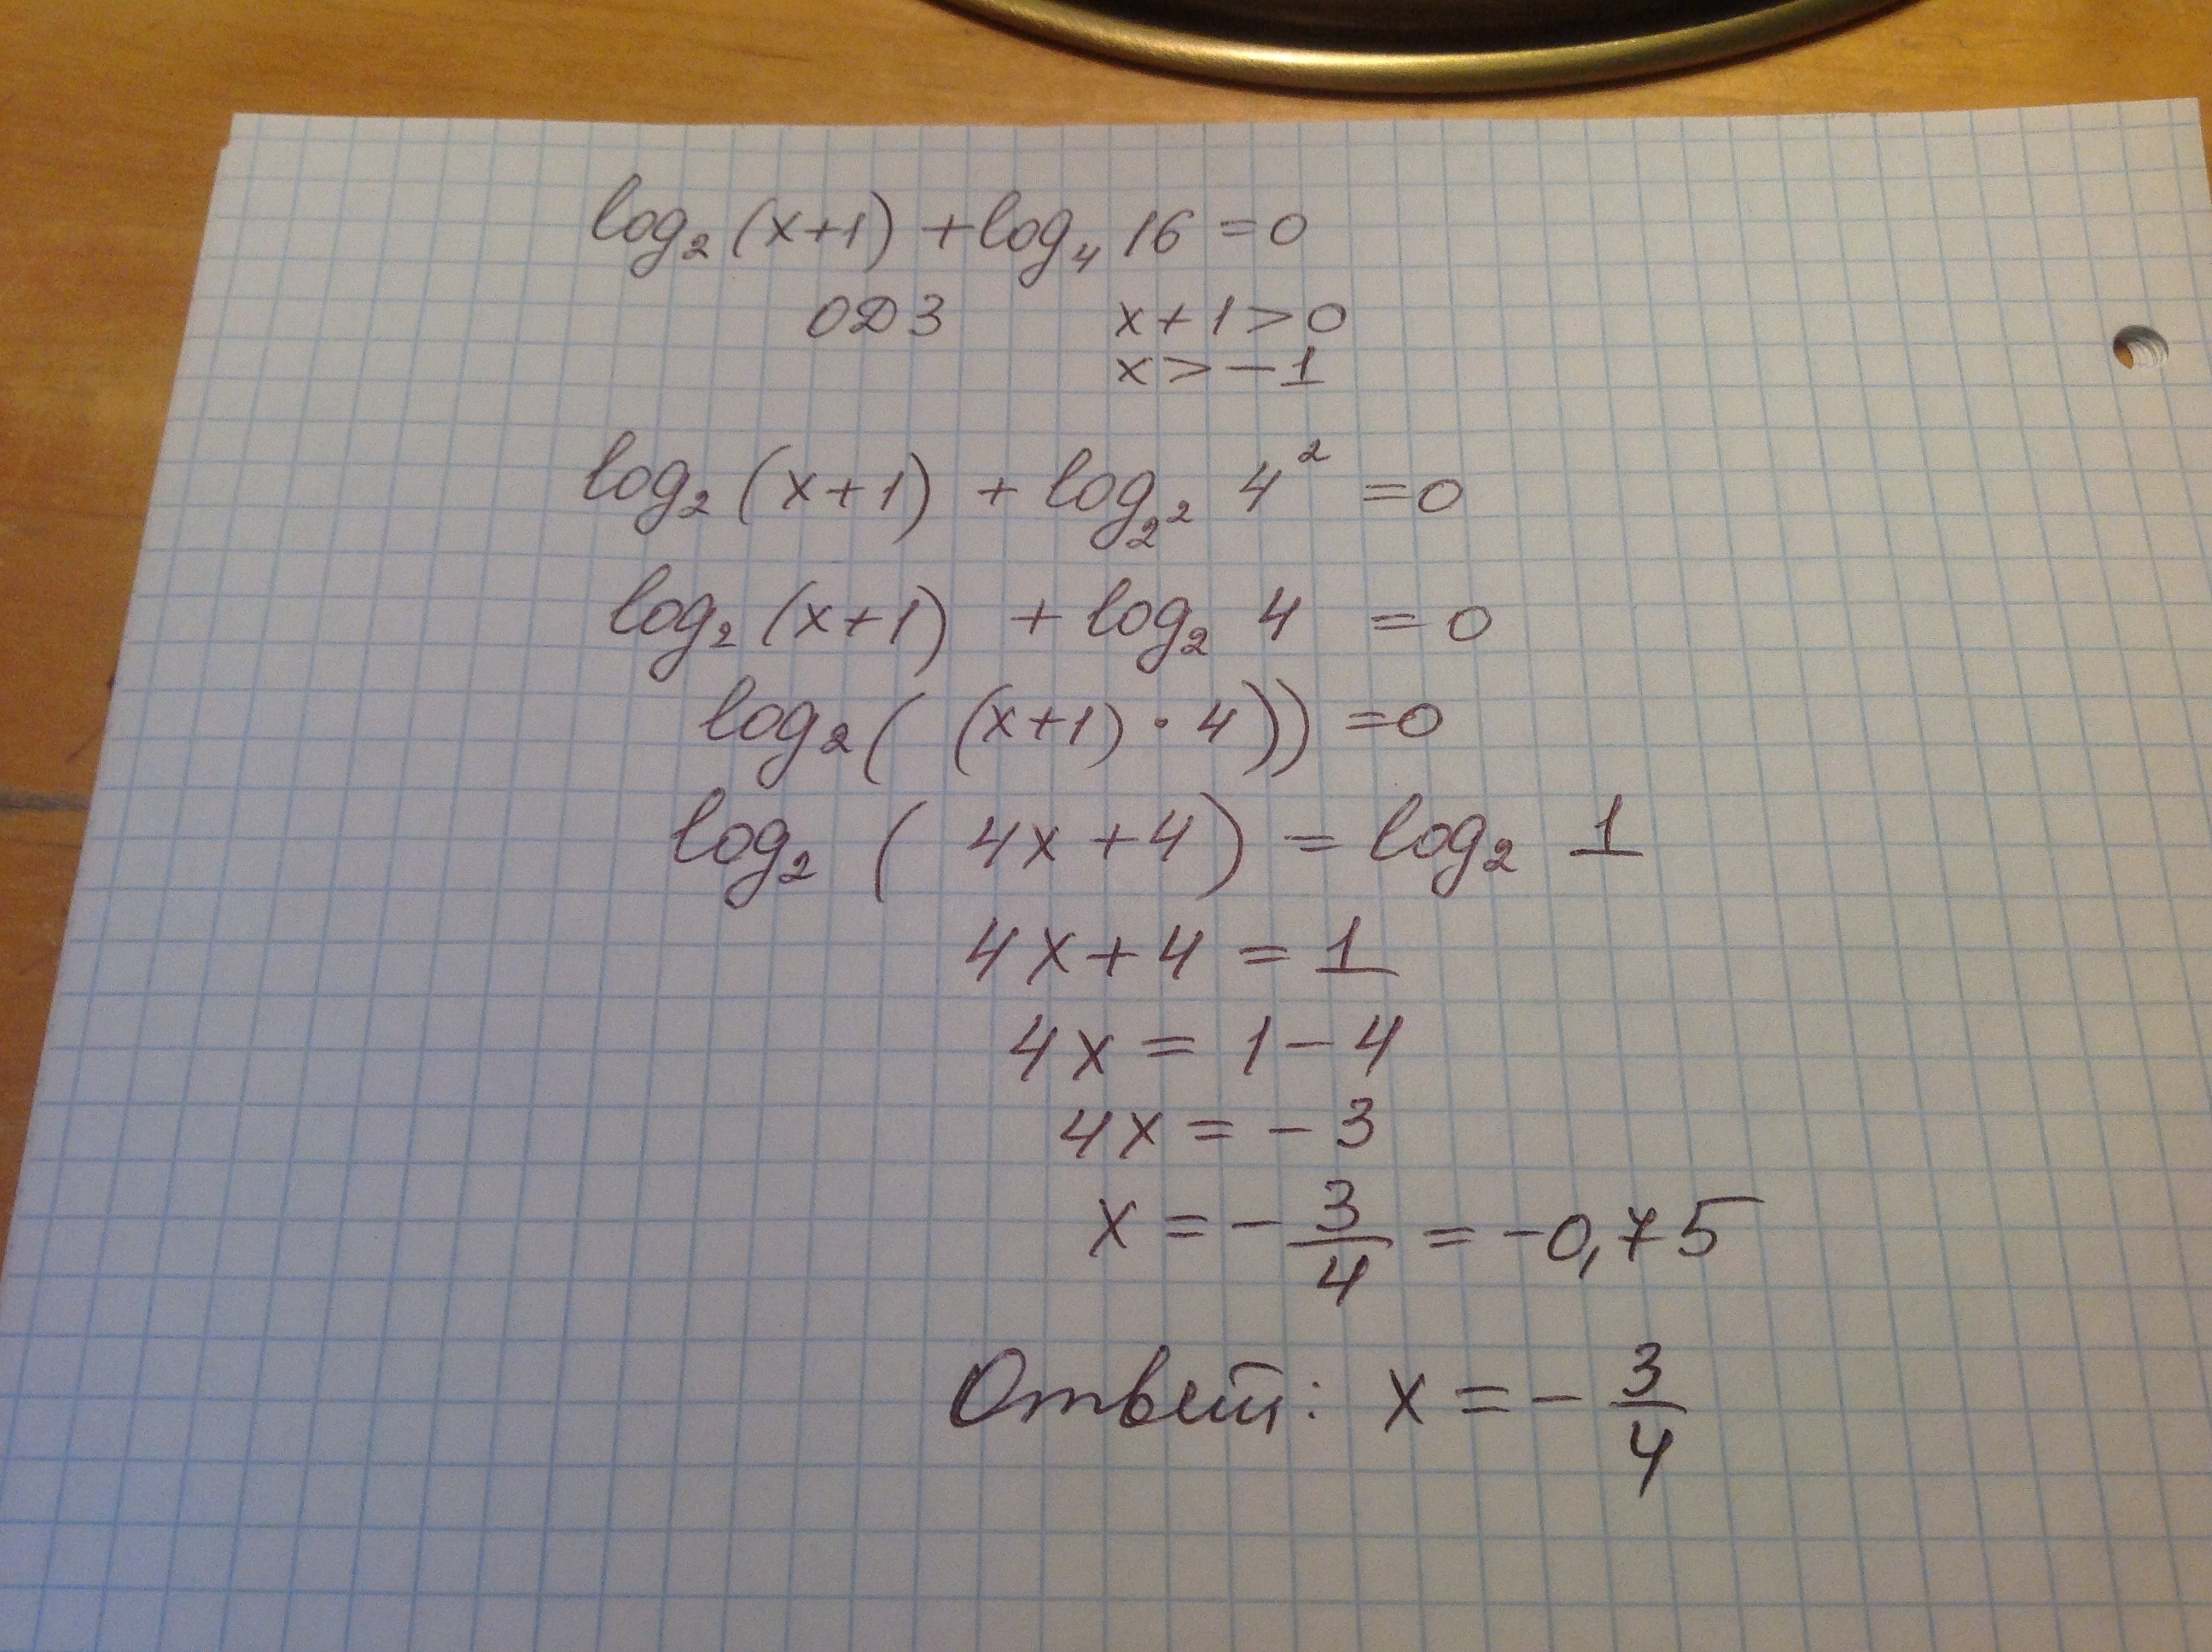 log₂(x+1) + log₄ 16 = 0
ОДЗ x+1>0
x>-1
log₂(x+1) + log_{2²} 4² = 0
log₂(x+1) + log₂ 4 = 0
log₂( (x+1)·4)) = 0
log₂ ( 4x+4) = log₂ 1
4x+4 = 1
4x = 1-4
4x = -3
x = -3/4 = -0,75
Ответ: x = -3/4